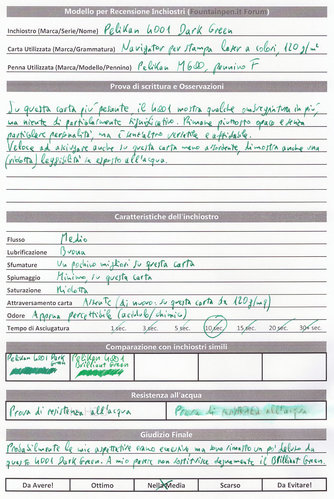 Modello per Recensione Inchiostri (Fountainpen.it Forum)
Inchiostro (Marca/Serie/Nome) Pelikan 4001 Dark Green
Carta Utilizzata (Marca/Grammatura) Navigator per stampa laser a colori, 120 g/m²
Penna Utilizzata (Marca/Modello/Pennino) Pelikan M600, pennino F
Prova di scrittura e Osservazioni
Su questa carta più pesante il 4001 mostra qualche in più,
ma niente di particolarmente significativo. Rimane piuttosto opaco e senza
particolare personalità, ma è senz'altro e affidabile.
Veloce ad asciugare anche su questa carta meno assorbente, dimostra anche una
(ridotta) leggibilità in esposto all'acqua.
Caratteristiche dell'inchiostro
Flusso Medio
Lubrificazione Buona
Sfumature Un pochino migliori su questa carta
Spiumaggio Minimo, su questa carta
Saturazione Ridotta
Attraversamento carta Assente (di nuovo: su questa carta da 120 g/mq)
Odore Appena percettibile (acidulo/chimico)
Tempo di Asciugatura 1 sec. 3 sec. 5 sec. 10 sec. 15 sec. 20 sec. 30+ sec.
Comparazione con inchiostri simili
Pelikan 4001 Dark Green
Pelikan 4001 Brilliant Green
Resistenza all'acqua
Prova di resistenza all'acqua Prova di resistenza all'acqua
Giudizio Finale
Probabilmente le mie aspettative erano eccessive, ma sono rimasto un po' deluso da
questo 4001 Dark Green. A mio parere non sostituisce degnamente il Brilliant Green.
Da Avere! Ottimo Nella Media Scarso Da Evitare!